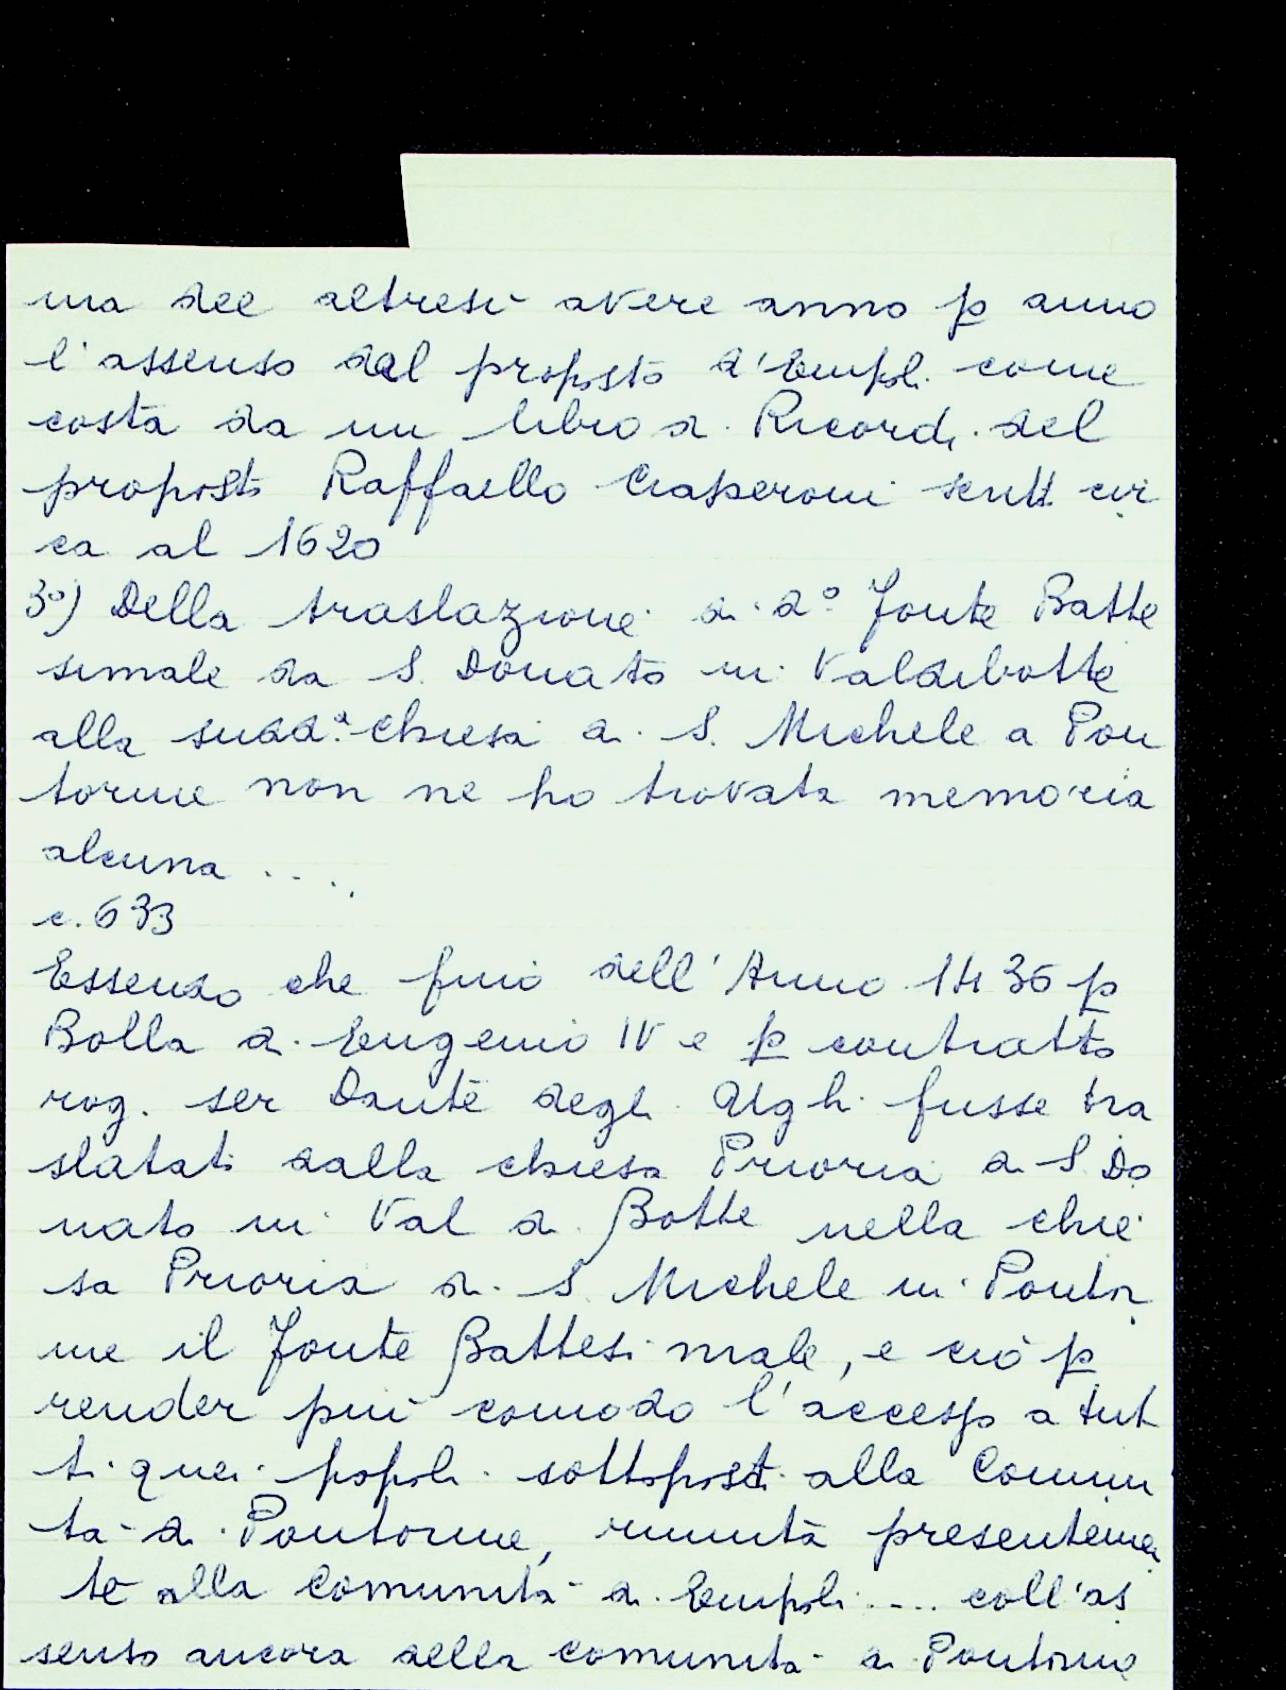 ma dee altresì avere anno p anno
l'assenso del proposto d'Empoli come
costa da un libro di Ricordi del
proposto Raffaello Ciaperoni scritt. cir
ca al 1620
3°) Della traslazione di d.° fonte Batte
simale da S. Donato in Valdibotte
alla sudd.ª chiesa di S. Michele a Pon
torme non ne ho trovata memoria
alcuna ....
c. 633
Essendo che fino dell'Anno 1436 p
Bolla di Eugenio IV e p contratto
rog. ser Dante degli Ughi fusse tra
slatati dalla chiesa Prioria di S. Do
nato in Val di Botte nella chie
sa Prioria di S. Michele in Pontor
me il fonte Battesimale, e ciò p
render più comodo l'accesso a tut
ti quei popoli sottoposti alla Comuni
tà di Pontorme, riunita presentemen
te alla Comunità di Empoli .... coll'as
senso ancora della comunità di Pontorme